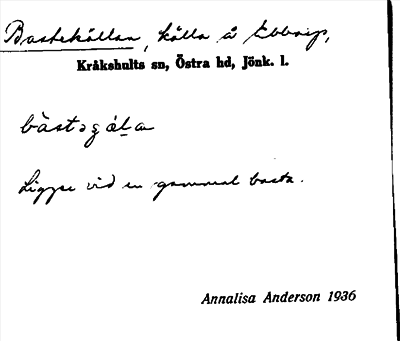 Bastekällan, källa å Ebbarp,
Kråkshults sn, Östra hd, Jönk. l.
bàstəɕál̠a
Ligger vid en gammal basta.
Annalisa Anderson 1936